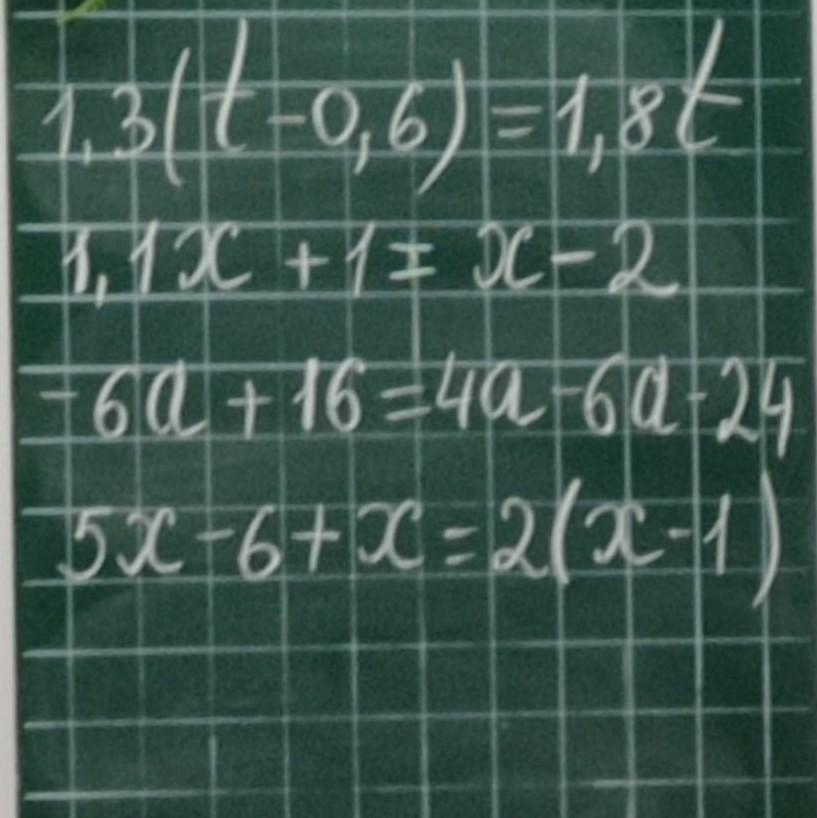 1,3(t-0,6)=1,8t
1,1x+1=x-2
-6a+16=4a-6a-24
5x-6+x=2(x-1)